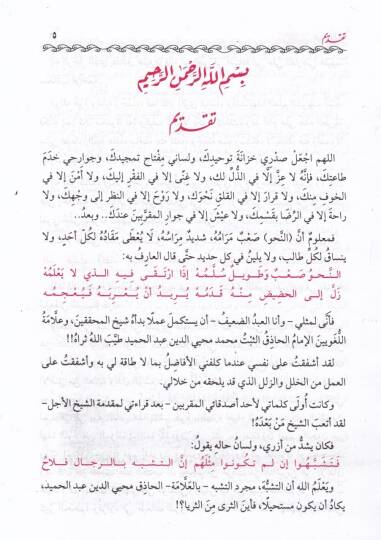 تقديم ٥
بسم الله الرحمن الرحيم
تقديم
اللهم اجْعَلْ صدْري خزانَةَ توحيدكَ، ولساني مِفْتاح تمجيدكَ، وجوارحي خدَمَ
طاعتِكَ، فإنَّهُ لا عِزَّ إلَّا في الذُّلِّ لك، ولا غِنًى إلا في الفقْرِ إليكَ، ولا أمْنَ إلا في
الخوفِ مِنكَ، ولا قرارَ إلا في القلقِ نَحْوَك، ولا رَوْحَ إلا في النظر إلى وجْهِكَ، ولا
راحةَ إلا في الرِّضَا بقَسْمِكَ، ولا عيْشَ إلا في جوار المقرَّبينَ عندَكَ.. وبعدُ..
فمعلومٌ أنَّ (النحوَ) صَعْبٌ مَرَامُهُ، شديدٌ مِرَاسُهُ، لَا يُعْطَى مَقَادُهُ لكُلِّ أحَدٍ، ولا
ينساقُ لكُلِّ طالب، ولا يلينُ في كل حديد حتَّى قال العارِفُ به:
النَّحْوُ صَعْبٌ وَطَوِيلٌ سُلَّمُهْ إذَا ارْتَقَى فِيهِ الذي لا يَعْلَمُهْ
زَلَّ إلى الحضيضِ مِنْهُ قَدَمُهْ يُرِيدُ أنْ يُعْرِبَهُ فَيُعْجِمُهْ
فأنَّى لمثلي - وأنا العبدُ الضعيفُ - أن يستكملَ عملًا بدأهُ شيخُ المحققينَ، وعلَّامَةُ
اللُّغويينَ الإمامُ الحاذِقُ الثبْتُ محمد محيي الدين عبد الحميد طيَّبَ اللهُ ثراهُ!!
لقد أشفقتُ على نفسي عندما كلفني الأفاضِلُ بما لا طاقة لي به وأشفقتُ على
العمل من الخلل والزلل الذي قد يلحقه من خلالي.
وكانت أُولَى كلماتي لأحد أصدقائي المقربين - بعد قراءتي لمقدمة الشيخ الأجل -
لقد أتعبَ الشيخُ مَنْ بَعْدَهُ!
فكان يشدُّ من أزري، ولسانُ حالِهِ يقولُ:
فَتَشَبَّهُوا إن لم تكونُوا مِثْلَهُم إنَّ التشبه بالرجال فلاحُ
ويَعْلَمُ الله أن التشبُّهَ، مجرد التشبه - بالعلَّامَةِ- الحاذِقِ محيي الدين عبد الحميد،
يكادُ أن يكون مستحيلًا، فأينَ الثرى مِنَ الثريا؟!